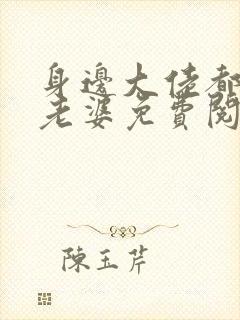 身邊大佬都
老婆免費閱
陳玉芹